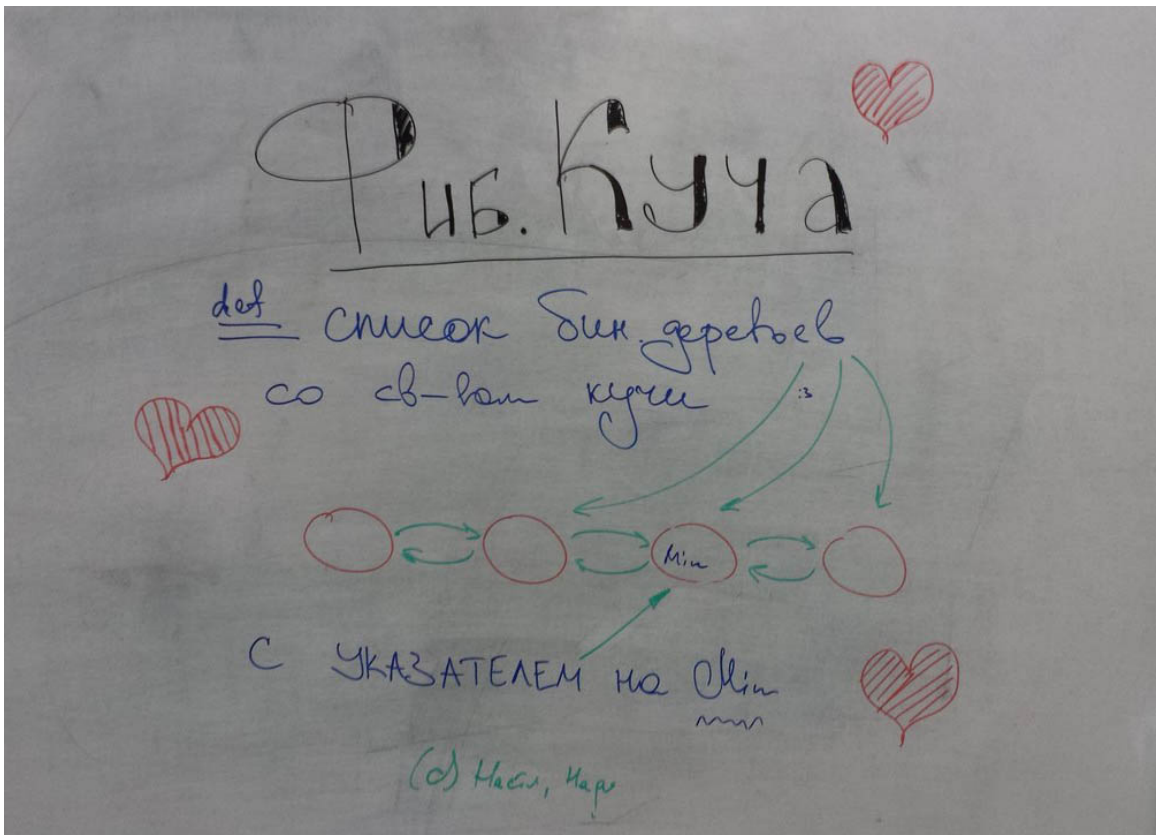 Фиб. Куча
def список бин. деревьев
со св-вом кучи :3
Min
с УКАЗАТЕЛЕМ на Min
(c)